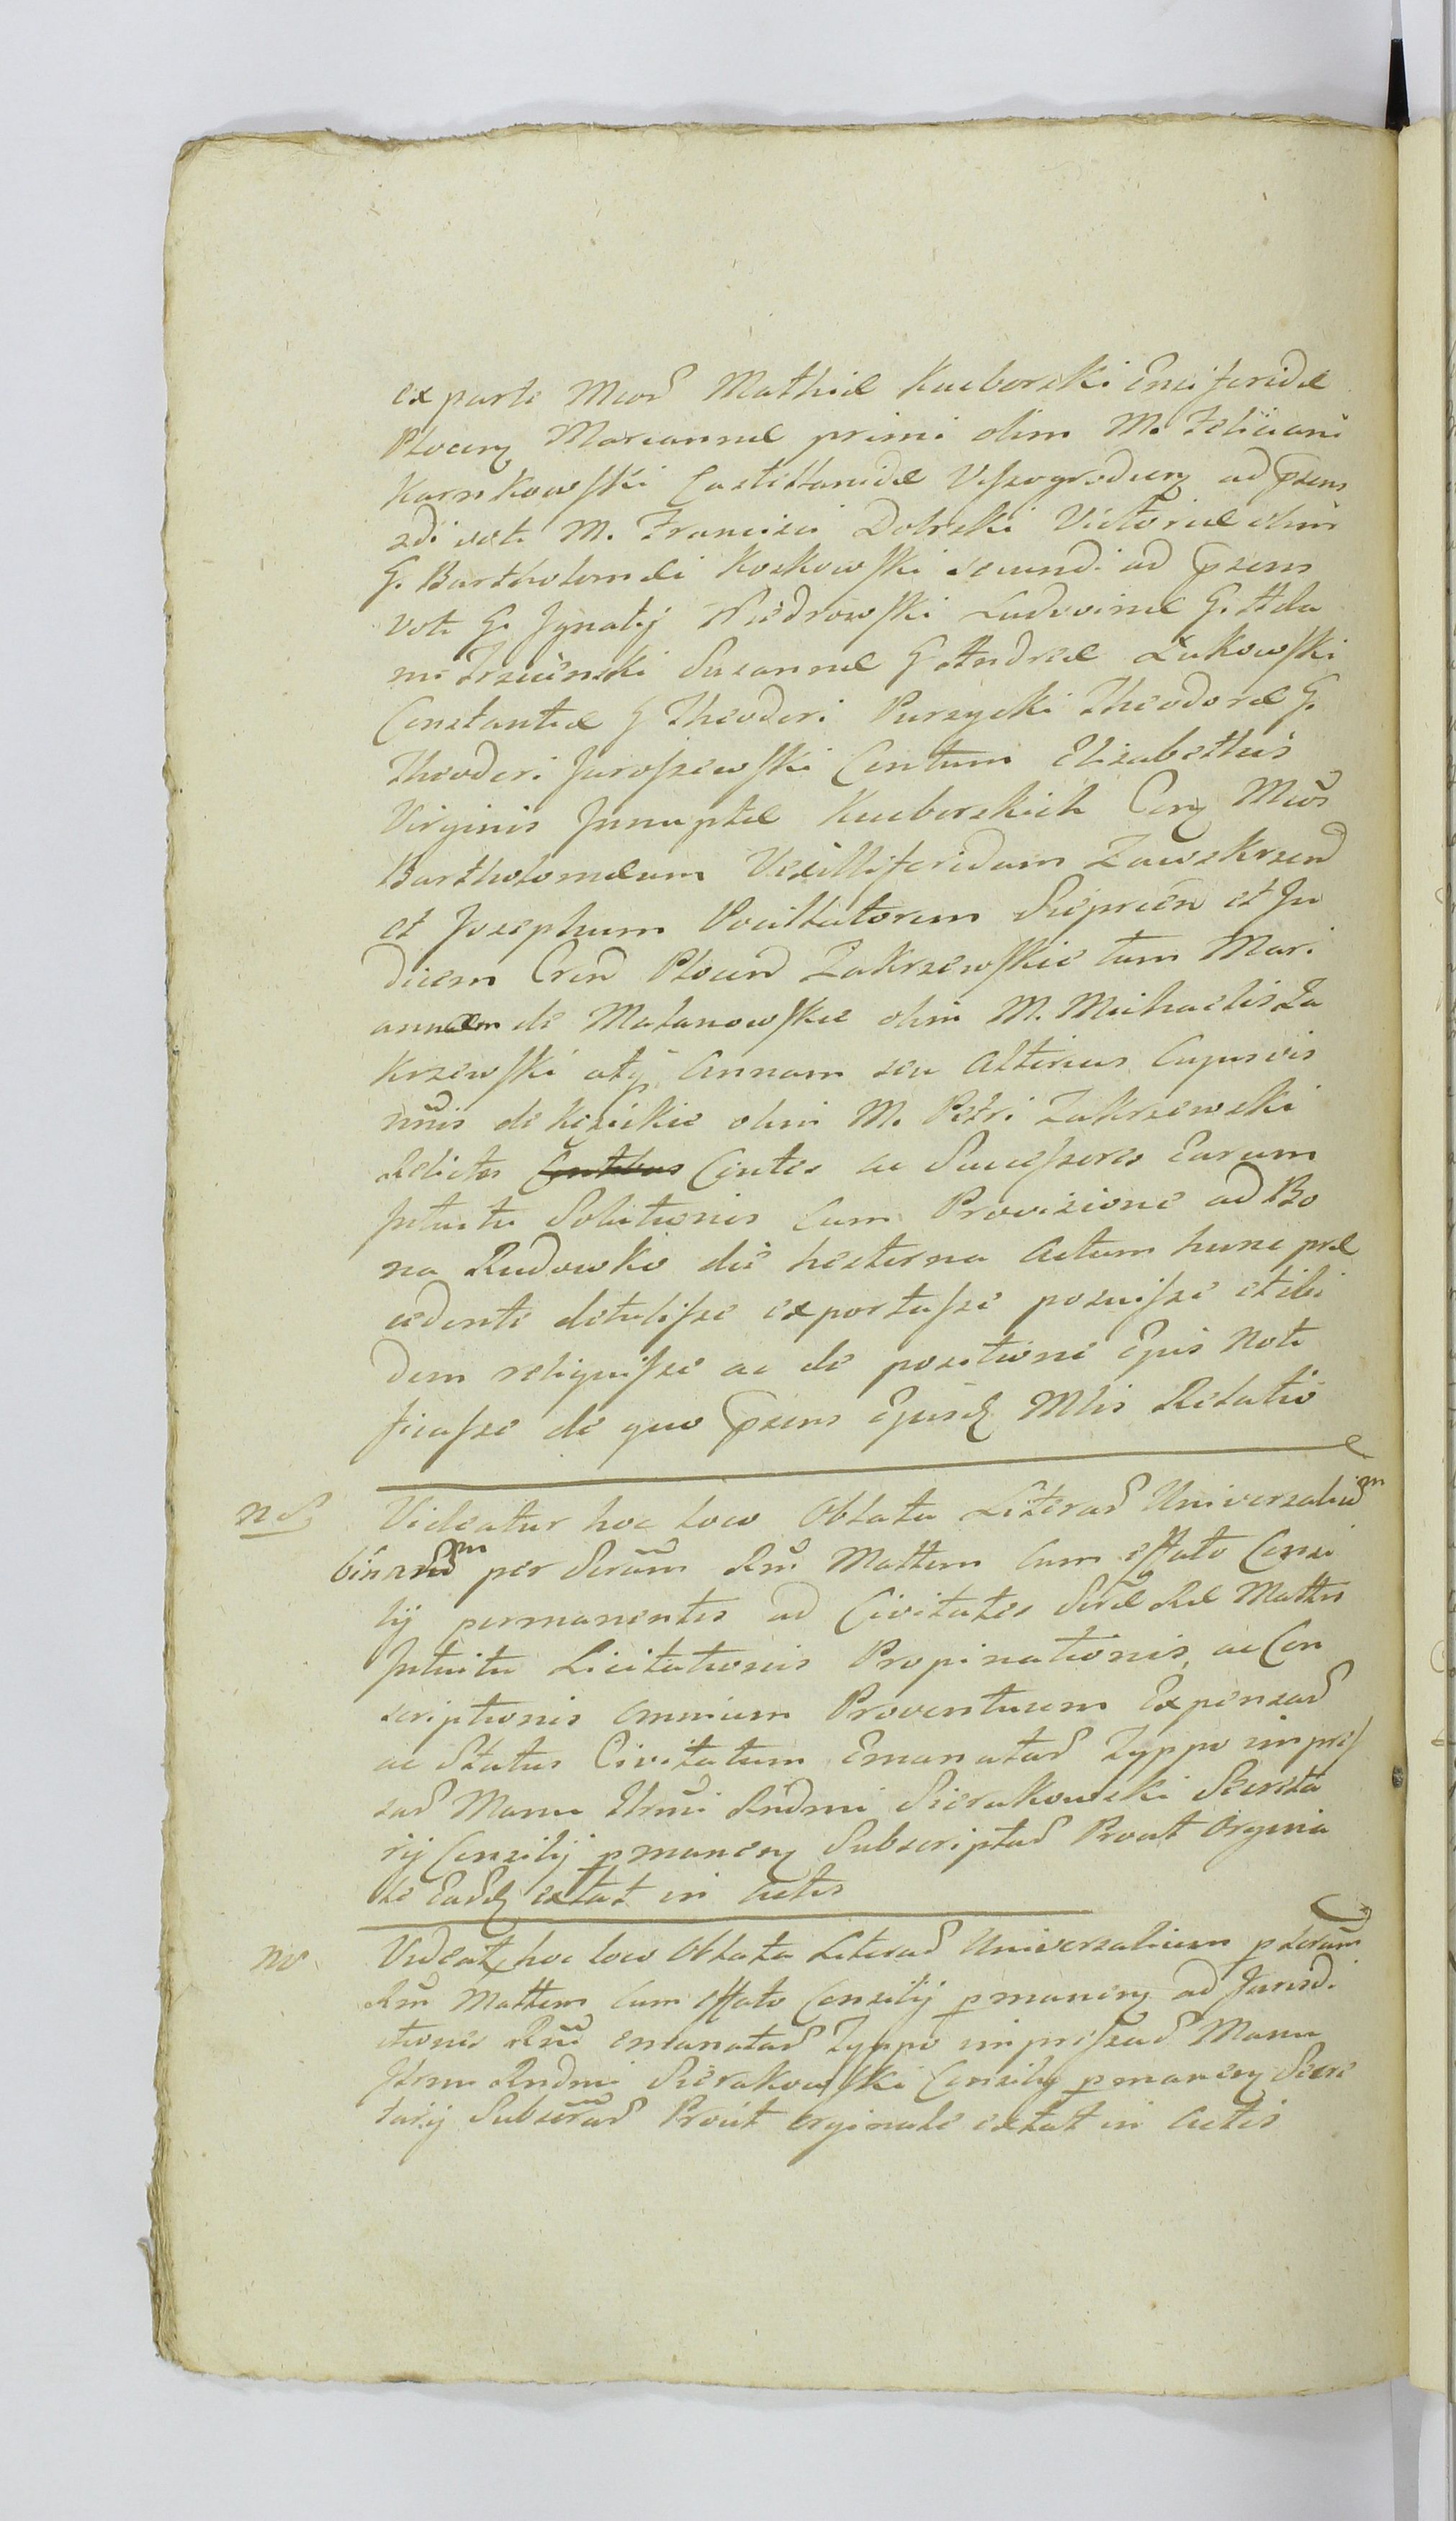 ex parte Mcor Mathiæ Kueborski Ensiferidæ
Plocen Mariannæ primi olim M. Feliciani
Karnkowski Castellanidæ Vissogroden ad præns
2di voti M. Francisci Dobrski Victoriæ olim
G. Bartholomæi Koskowski secundi ad præsens
voti G. Ignatij Niedrowski Ludovinæ G. Ada
mi Trzcinski Susannæ G Andreæ Łukowski
Constantiæ G Theodori Purzycki Theodoræ G.
Theodori Jaroszewski Contum Elisabethis
Virginis Innuptæ Kueborskich Con Mcos
Bartholomæum Vexilliferidam Zawskrzen
et Josephum Pocillatorem Sieprcen et Ju
dicem Cren Plocen Zakrzewskie tum Mari
annam de Mdzanowskie olim M. Michaelis Za
krzewski atq Annam seu Alterius Cujusvis
nnis de olim M. Petri Zakrzewski
Relictas Contes ac Successores Earum
Intuitu Solutionis Cum Provisione ad Bo
na Rudowko die hesterna Actum hunc præ
cedenti detulisse exportasse posuisse et ibi
dem reliquisse ac de positione Ejus Noti
ficasse de quo præsens Ejusd Mlis Relatio
nő Videatur hoc loco Oblata Literar Universalium
binarum per Serum Rm Mattem Cum effato Consi
lij permanentis ad Civitates Seræ Ræ Mattis
Intuitu Licitationis Propinationis, ac Con
scriptionis omnium Proventuum Expensar
ac Status Civitatum Emanatar Typpo impres
sar Manu Illmi Rndmi Sierakowski Secreta
rij Consilij pmanen Subscriptar Prout Orygina
le Eard extat in Actis
no Videat hoc loco Oblata Literar Universalium p Serum
Rm Mattem Cum effato Consilij pmanen ad Jurisdi
ctiones Rni emanatar Typpo impressar Manu
Illmi Rndmi Sierakowski Consilij pmanen Secre
tarij Subscrar Prout orginale extat in Actis